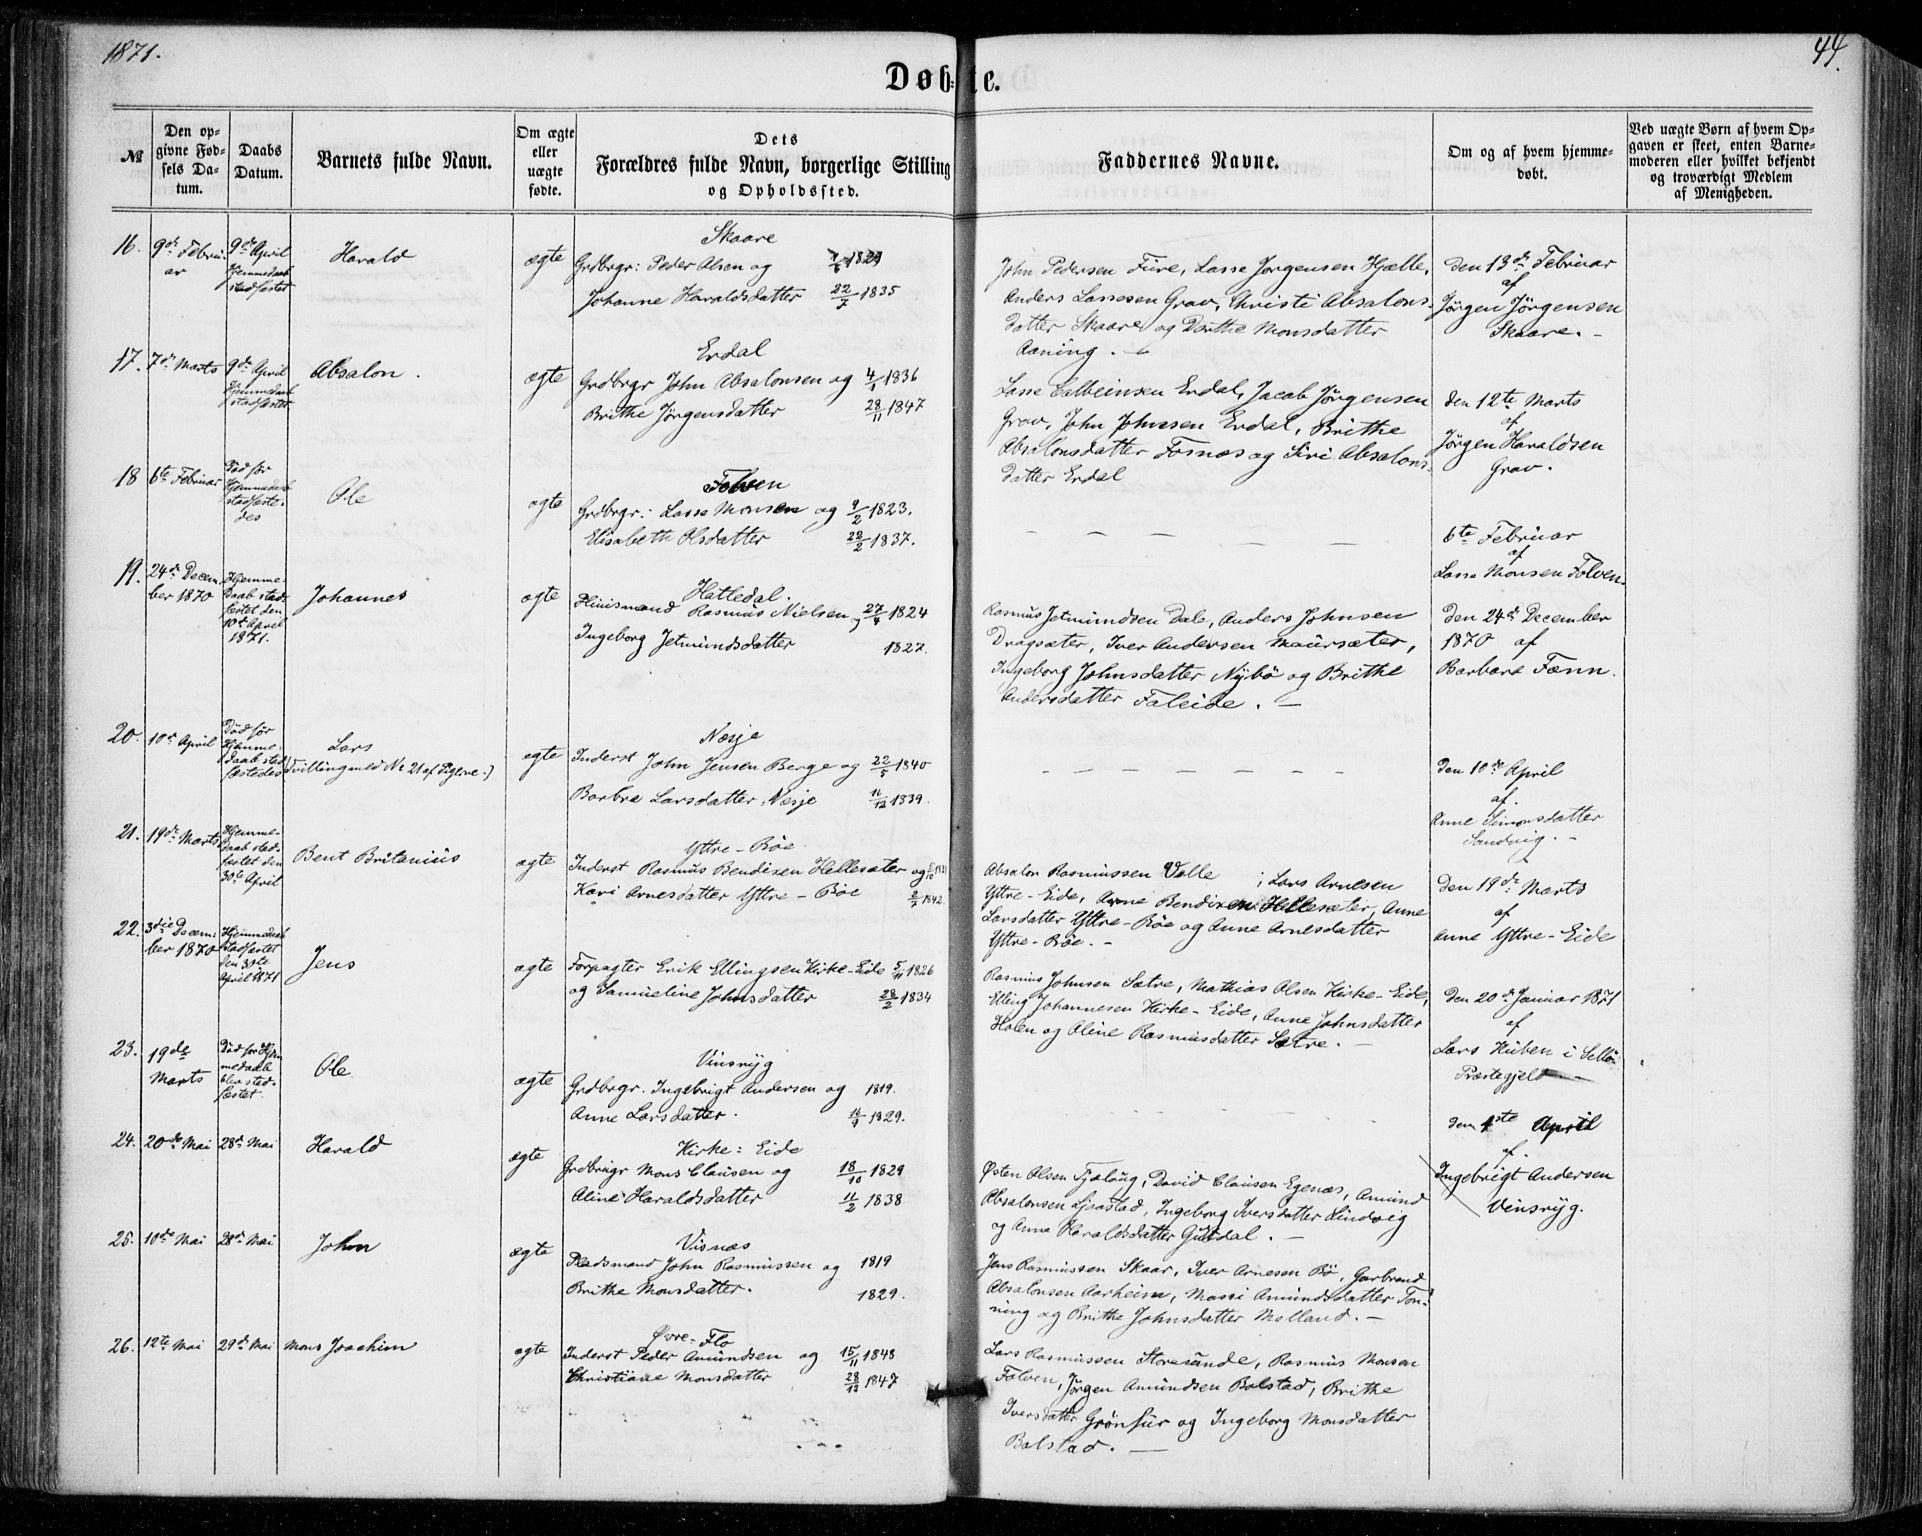 1871.
44.
Døbte.
№
Den op-
givne Fød-
sels Da-
tum.
Daabs
Datum.
Barnets fulde Navn.
Om ægte
eller
uægte
fødte.
Dets
Forældres fulde Navn, borgerlige Stilling
og Opholdssted.
Faddernes Navne.
Om og af hvem hjemme-
døbt.
Ved uægte Børn af hvem Op-
gaven er skeet, enten Barne-
moderen eller hvilket bekjendt
og troværdigt Medlem
af Menigheden.
16.
9de Febru-
ar
9de April
Hjemmedaab
stadfæstet
Harald
ægte
Skaare
Grdbrgr: Peder Olsen og
Johanne Haraldsdatter 22/7 1835
John Pedersen Fure, Lasse Jørgensen Hjelle,
Anders Lassesen Grav, Christi Absalons-
datter Skaare og Dorthe Monsdatter
Aaning. -
Den 13de Februar
af
Jørgen Jørgensen
Skaare. -
17.
7de Marts
9de April
Hjemmedaab
stadfæstet
Absalon.
ægte
Erdal
Grdbrgr John Absalonsen og 4/5 1836
Brithe Jørgensdatter 28/11 1847
Lasse Erdal, Jacob Jørgensen
Grav, John Johnsen Erdal, Brithe
Absalonsdatter Fosnæs og Siri Absalons-
datter Erdal
den 12te Marts
af
Jørgen Haraldsen
Grav.
18
6te Februar
Død før
Hjemmedaab
stadfæste-
des
Ole
ægte
Folven
Grdbrgr: Lasse Monsen og 9/2 1823.
Elisabeth Olsdatter 22/2 1837.
6te Februar
af
Lasse Monsen Folven.
19.
24de Decem-
ber 1870
Hjemme-
daab stad-
fæstet den
10de April
1871.
Johannes
ægte
Hattedal.
Huusmand Rasmus Nielsen og 27/4 1824
Ingeborg Jetmundsdatter 1827.
Rasmus Jetmundsen Dale, Anders Johnsen
Dragsæter, Iver Andersen Maursæter,
Ingeborg Johnsdatter Nybø og Brithe
Andersdatter Faleide. -
Den 24de December
1870 af
Barbara Fænn.
20.
10de April
Død før
Hjemme-
daab stad-
fæstedes
Lars
(Tvilling med No 21 af Pigerne:)
ægte
Nesje
Inderst John Jensen Berge og 22/5 1840
Barbra Larsdatter Nesje 11/12 1839.
Den 10de April
af.
Anne Simonsdatter
Sandvig. -
21.
19de Marts
Hjemme-
daab stad-
fæstet den
30te April
Bent Britanius
ægte
Yttre-Bøe
Inderst Rasmus Bendixen Hellesæter og
Kari Arnesdatter Yttre-Bøe 2/7 1842.
Absalon Rasmussen Valle, Lars Arnesen
Yttre-Eide, Arne Bendixen Hellesæter, Anne
Larsdatter Yttre-Bøe og Anne Arnesdatter
Yttre-Bøe. -
Den 19de Marts
af
Anne Yttre-Eide
22.
3die Decem-
ber 1870
Hjemmedaab
stadfæstet
den 30te
April 1871
Jens
ægte
Forpagter Erik Ellingsen Kirke-Eide 5/11 1826
og Samueline Johnsdatter 28/2 1834
Rasmus Johnsen Sætre, Mathias Olsen Kirke-Eide,
Elling Johannesen Kirke-Eide, Anne Johnsdatter
Holen og Oline Rasmusdatter Sætre. -
Den 20de Januar 1871
af
Lars Kuben i Sellø-
Præstegjeld
23.
19de
Marts
Død før Hjem-
medaab
blev stad-
fæstet.
Ole
ægte
Vinsryg
Grdbrgr. Ingebrigt Andersen og 1819.
Anne Larsdatter. 1829.
den 1ste April
af.
Ingebrigt Andersen
Vinsryg.
24.
20de Mai
28de Mai
Harald
ægte
Kirke-Eide
Grdbrugr Mons Clausen og 18/10 1829
Oline Haraldsdatter 11/2 1838
Østen Olsen Tjaloug, David Clausen Egenæs, Amund
Absalonsen Ljosstad, Ingeborg Iversdatter Lindvig
og Anne Haraldsdatter Guldal. -
25.
10de Mai
28de Mai
John
ægte
Visnæs
Pladsmand John Rasmussen og 1819
Brithe Monsdatter. 1829.
Jens Rasmussen Skaar, Iver Arnesen Bø, Garbrand
Absalonsen Aarheim, Massi Amundsdatter Ton-
ning og Brithe Johnsdatter Melland. -
26.
12te Mai
29de Mai
Mons Joachim
ægte
Øvre-Flo
Inderst Peder Amundsen og 15/11 1848
Christiane Monsdatter 28/12 1847
Lars Rasmussen Storesunde, Rasmus Monsen
Folven, Jørgen Amundsen Bolstad, Brithe
Iversdatter Grønfur og Ingeborg Monsdatter
Bolstad. -